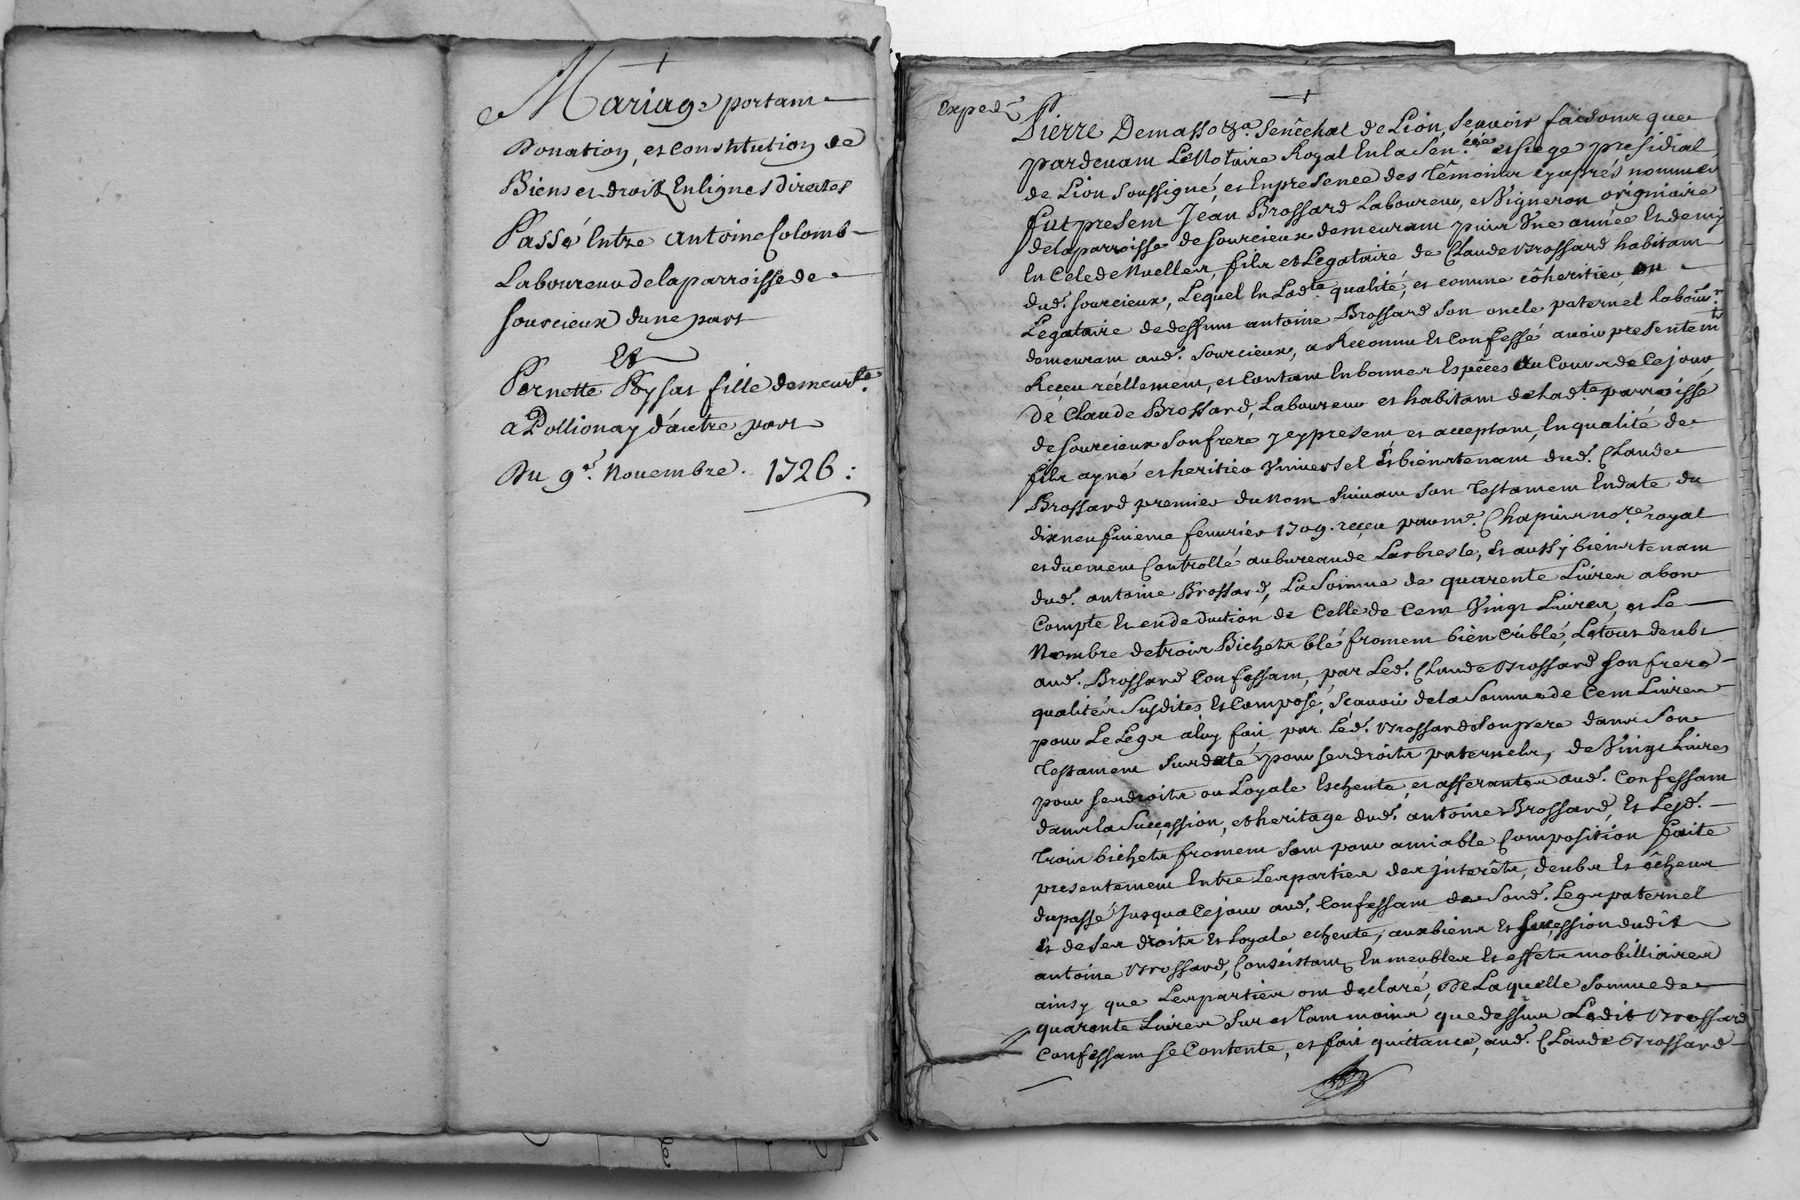 Mariage portant
Donation, et constitution de
Biens et droits En lignes directes
Passé Entre Antoine Colomb
Laboureur de la parroisse de
Sourcieux d'une part
Et
Pernette Peysat fille demeurte.
a Pollionay d'autre part
Du 9e. Novembre. 1726 :
Exped.
Pierre Demasso &a. Senêchal de Lion, Scavoir faisons que
pardevant Le Notaire Royal En la Sen.cée et siege presidial
de Lion soussigné, et En presence des Têmoins cy aprés nommés
fut present Jean Brossard Laboureur, et Vigneron originaire
de la parroisse de Sourcieux demeurant puis Une année Et demy
En Cele de Nuelles, fils et Legataire de Claude Brossard habitant
dud. Sourcieux, Lequel En Lad.te qualité, et comme côheritier, ou
Legataire de deffunt antoine Brossard son oncle paternel Labour.r
demeurant aud. Sourcieux, a Reconnu Et Confessé avoir presentem.t
Receu réellement, et contant En bonnes Espêces au Cours de Ce jour,
De Claude Brossard, Laboureur et habitant de Lad.te parroisse
de Sourcieux son frere y cy present et acceptant, En qualité de
fils ayné et heritier Universel et bientenant dud. Claude
Brossard premier du nom suivant son Testament En date du
dixneufvieme fevrier 1709. reçeu par m.e Chapuis no.re royal
et duement Controllé au bureau de Larbresle, et aussy bientenant
dud. antoine Brossard, La Somme de quarente Livres a bon
Compte Et en deduction de Celle de Cent Vingt Livres, et Le
Nombre de trois Bichets blé froment bien criblé, Le tout deubt
aud. Brossard Confessant, par Led. Claude Brossard son frere
qualités Susdites Et Composé, Scavoir de la Somme de Cent Livres
pour Le Legs a luy fait par Led. Brossard son pere dans son
Testament Susdaté pour ses droits paternels, de Vingt Livres
pour ses droits ou Loyale Escheute, et afferantes aud. Confessant
dans la Succession, et heritage dud. antoine Brossard, Et Lesd.
Trois bichets froment sont pour amiable Composition faite
presentement Entre Les parties des jnterêts, deubs Et êcheus
du passé Jusqua Ce jour aud. Confessant de Sond. Legs paternel
Et de Ses droits Et Loyale echeute, aux biens Et succession dudit
antoine Brossard, Consistant En meubles Et effets mobilliaires
ainsy que Les parties ont declaré, De Laquelle Somme de
quarente Livres Sur et tant moins que dessus Ledit Brossard
Confessant se Contente, et fait quittance, aud. Claude Brossard